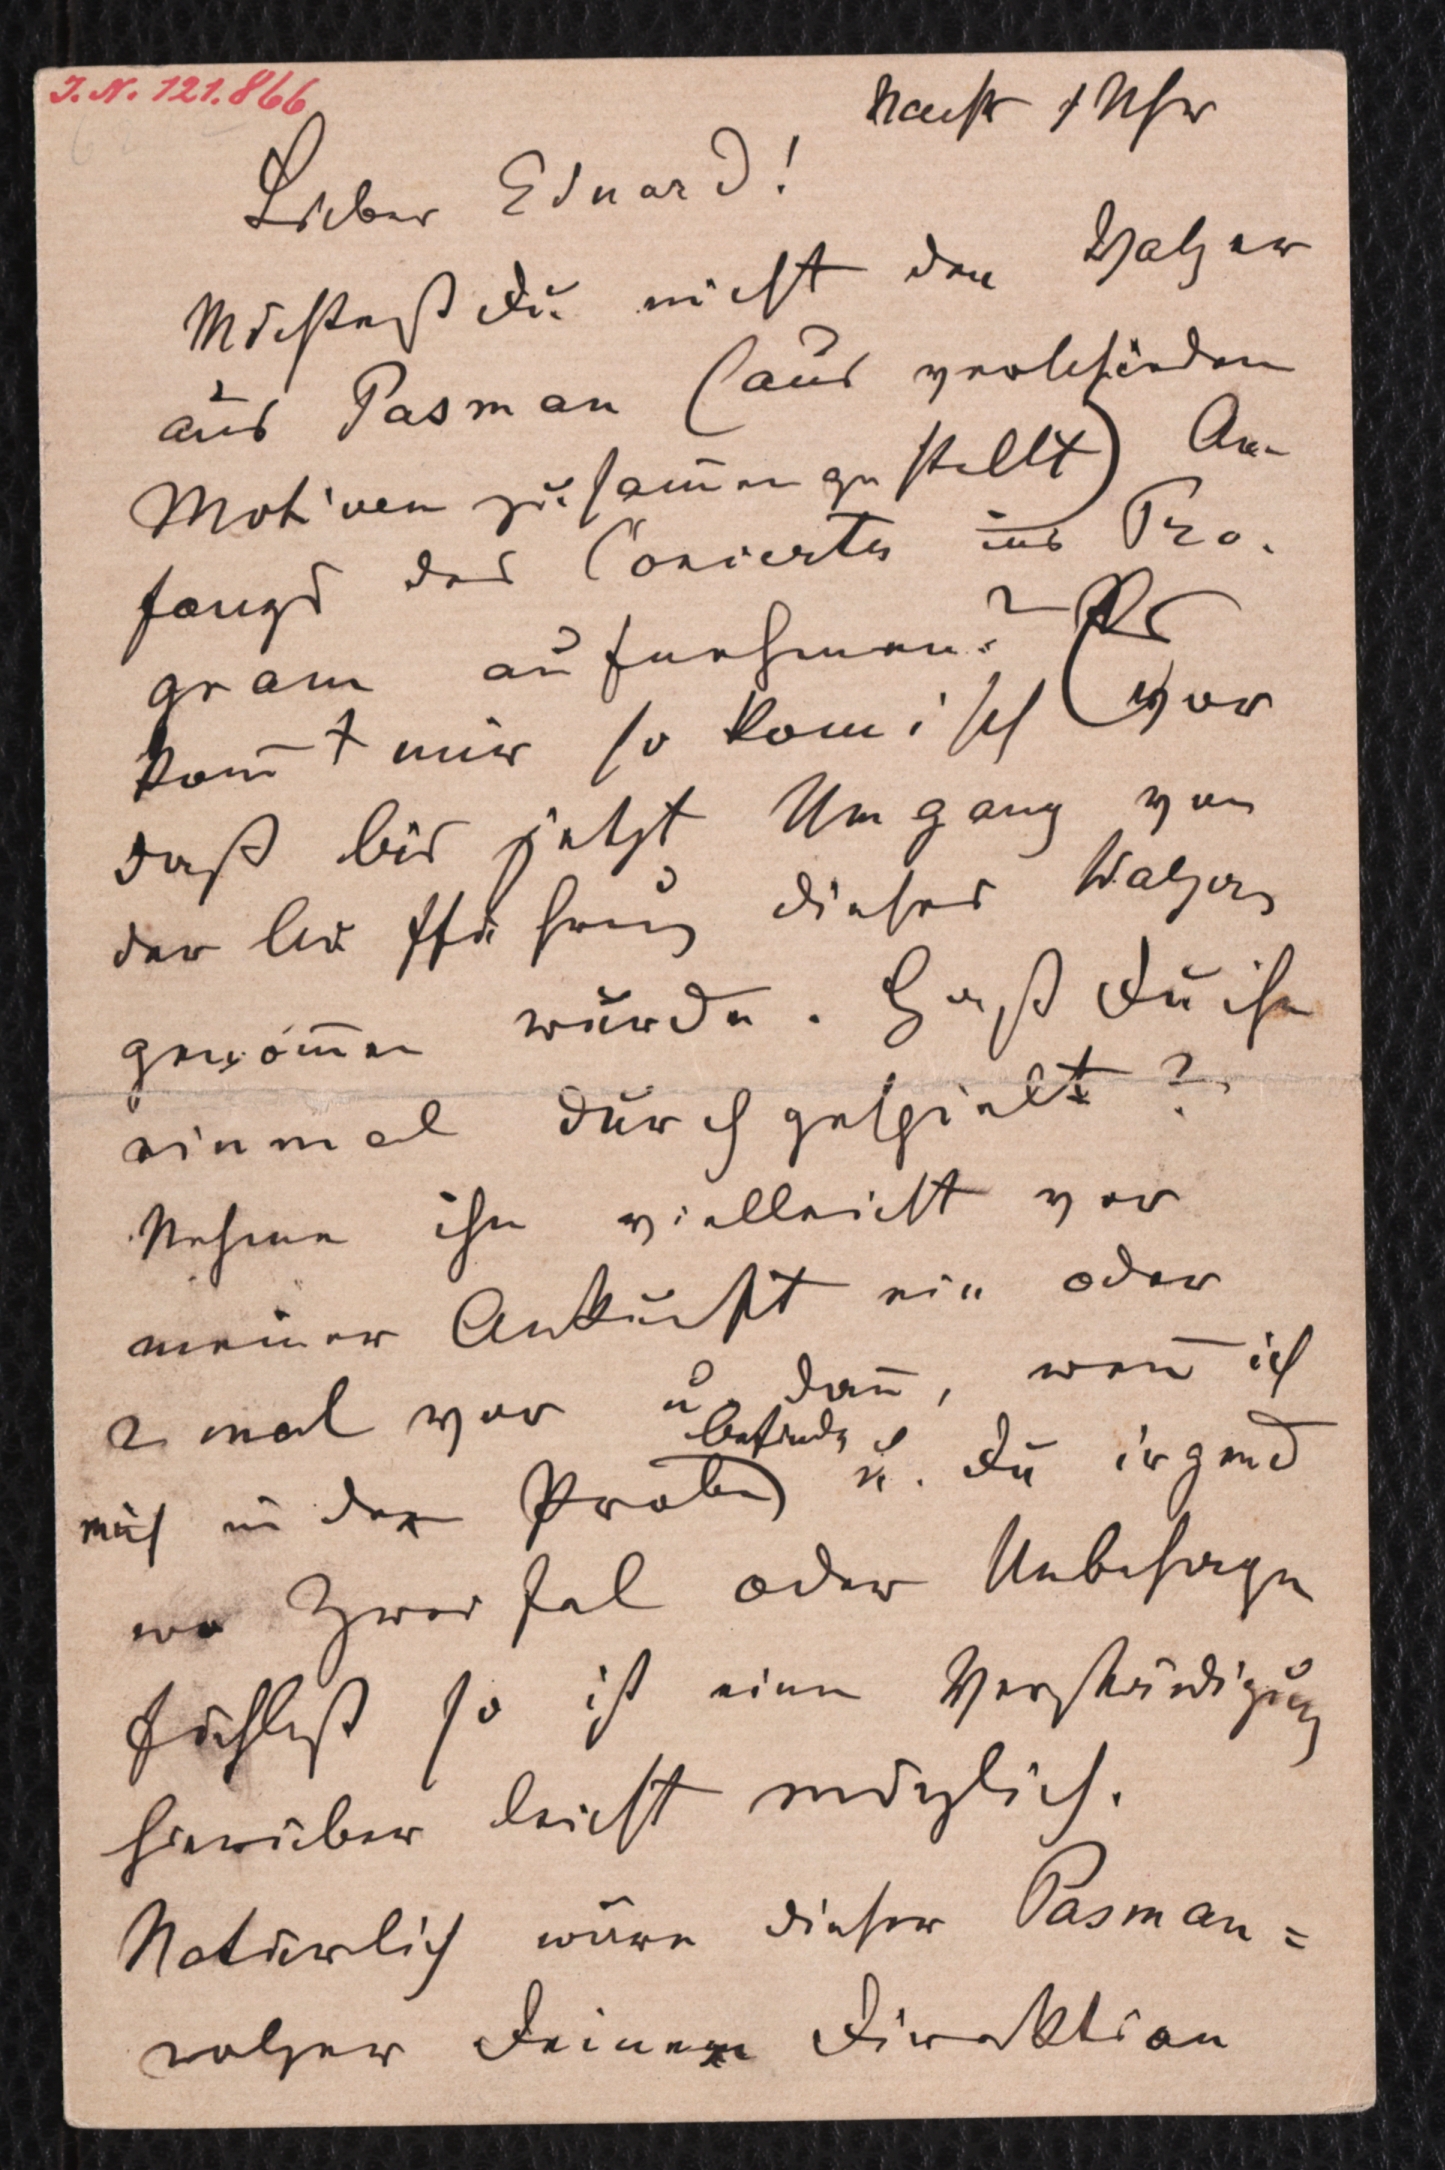 I.N. 121.866
Nachts 1 Uhr
Lieber Eduard!
Möchtest Du nicht den Walzer
aus Pasman (aus verschieden
Motiven zusam̅engestellt) An-
fangs des Concertes ins Pro-
gram aufnehmen? Es
kom̅t mir so komisch vor
daß bis jetzt Umgang von
der Aufführung dieses Walzers
genom̅en wurde. Hast Du ihn
einmal durchgespielt?
Nehme ihn vielleicht vor
meiner Ankunft ein oder
2 mal vor u. dan̅, wen̅ ich
mich in der Probe befinde u. Du irgend
wo Zweifel oder Unbehagen
fühlest so ist eine Verständigung
hierüber leicht möglich.
Natürlich wäre dieser Pasman=
walzer Deiner Direktion